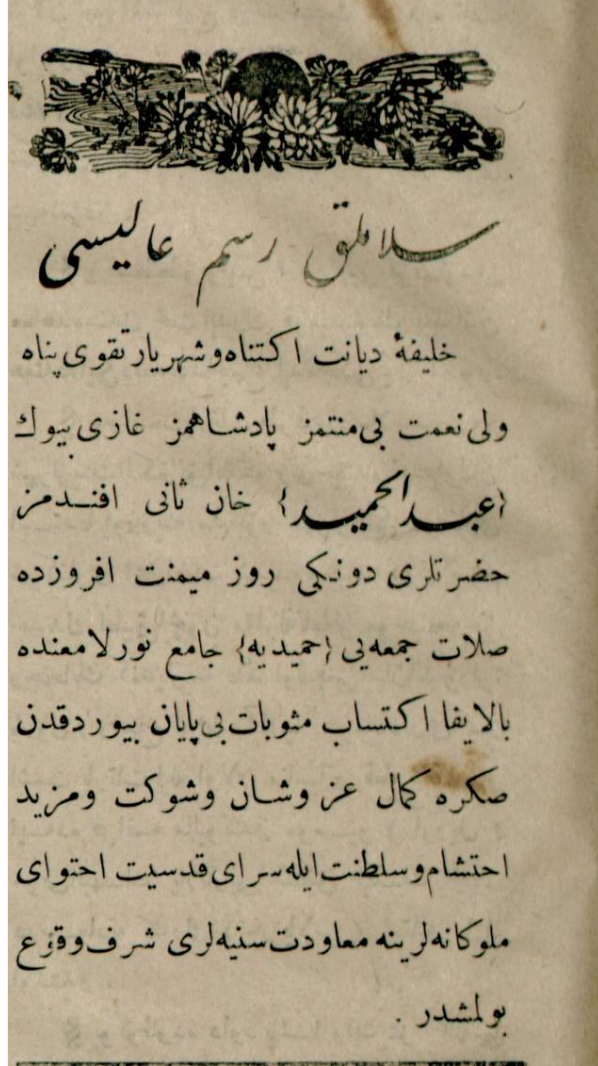 سلاملق رسم عاليسى
خليفهٔ ديانت اكتناه و شهريار تقوى پناه
ولى نعمت بى‌منتمز پادشاهمز غازى بيوك
{عبدالحميد} خان ثانى افندمز
حضرتلرى دونكى روز ميمنت افروزده
صلات جمعه‌يى {حميديه} جامع نورلامعنده
بالايفا اكتساب مثوبات بى‌پايان بيوردقدن
صكره كمال عز وشان وشوكت ومزيد
احتشام وسلطنت ايله سراى قدسيت احتواى
ملوكانه‌لرينه معاودت سنيه‌لرى شرف وقوع
بولمشدر .